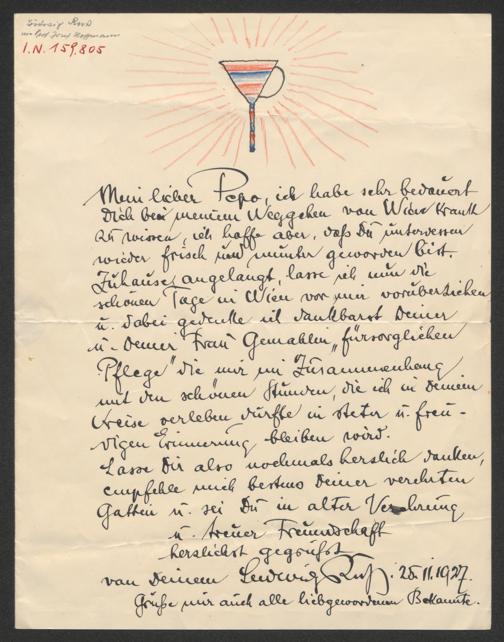 Ludwig Ruß
an Prof Josef Hoffmann
I.N. 159,805
Mein lieber Pepo, ich habe sehr bedauert
Dich bei meinem Weggehen von Wien krank
zu wissen, ich hoffe aber, daß Du unterdessen
wieder frisch und munter geworden bist.
Zuhause angelangt, lasse ich nun die
schönen Tage in Wien vor mir vorüberziehen
u. dabei gedenke ich dankbarst Deiner
u. Deiner Frau Gemahlin „fürsorglichen
Pflege" die mir im Zusammenhang
mit den schönen Stunden, die ich in Deinem
Kreise verleben durfte in steter u. freu-
digen Erinnerung bleiben wird.
Lasse Dir also nochmals herzlich danken,
empfehle mich bestens Deiner verehrten
Gattin u. sei Du in alter Verehrung
u. treuer Freundschaft
herzlichst gegrüßt
von Deinem Ludwig Ruß. 28.11.1927.
Grüße mir auch alle liebgewordenen Bekannte.